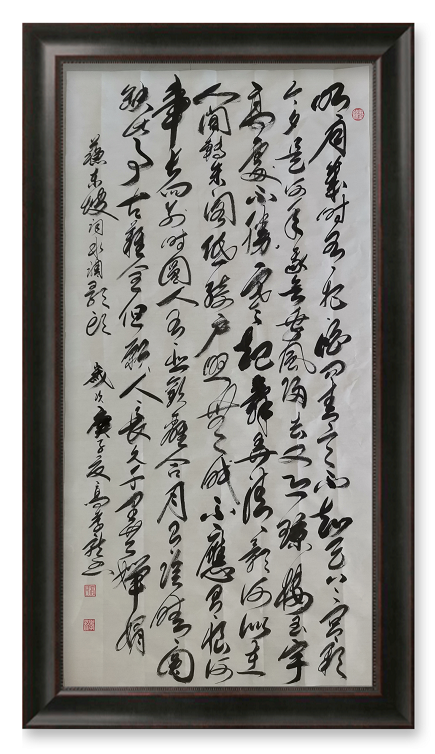 明月幾時有把酒問青天不知天上宮闕
今夕是何年我欲乘風歸去又恐瓊樓玉宇
高處不勝寒起舞弄清影何似在
人間轉朱閣低綺戶照無眠不應有恨何
事長向別時圓人有悲歡離合月有陰晴圓
缺此事古難全但願人長久千里共嬋娟
蘇東坡詞水調歌頭 歲次庚子夏高